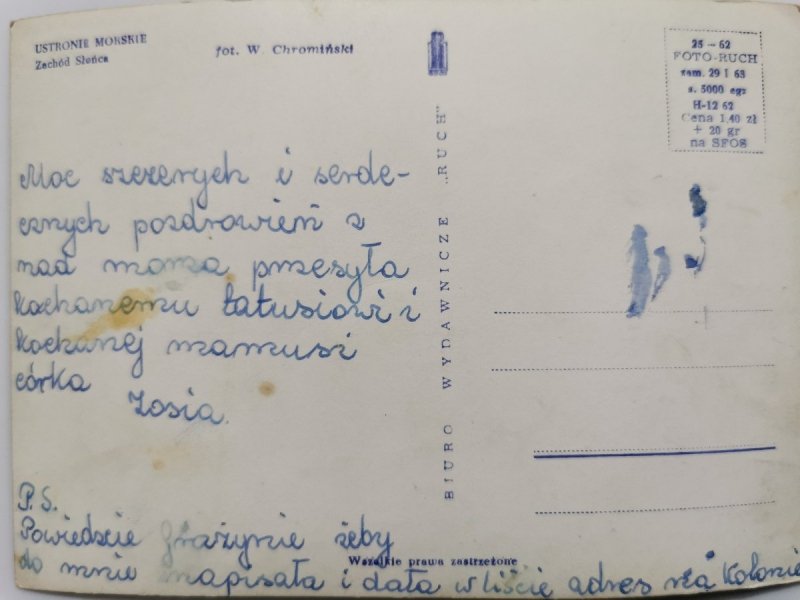 USTRONIE MORSKIE
Zachód Słońca
fot. W. Chromiński
25 — 62
FOTO-RUCH
zam. 29 I 63
s. 5000 egz
H-12 62
Cena 1,40 zł
+ 20 gr
na SFOS
BIURO WYDAWNICZE „RUCH”
Moc szczerych i serde-
cznych pozdrowień z
nad morza przesyła
kochanemu tatusiowi i
kochanej mamusi
córka
Zosia.
P.S.
Powiedzcie Grażynie żeby
do mnie napisała i dała w liście adres na kolonie
Wszelkie prawa zastrzeżone